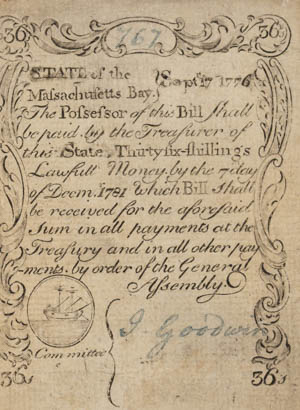 36s 767 36s
STATE of the Septr 17 1776
Massachusetts Bay.
The Possessor of this Bill shall
be paid by the Treasurer of
this State, Thirty six-shillings
Lawfull Money, by the 7 day
of Decm. 1781 Which Bill shall
be received for the aforesaid
sum in all payments at the
Treasury and in all other pay
ments. by order of the General
Assembly.
Committee
J Goodwin
36s 36s